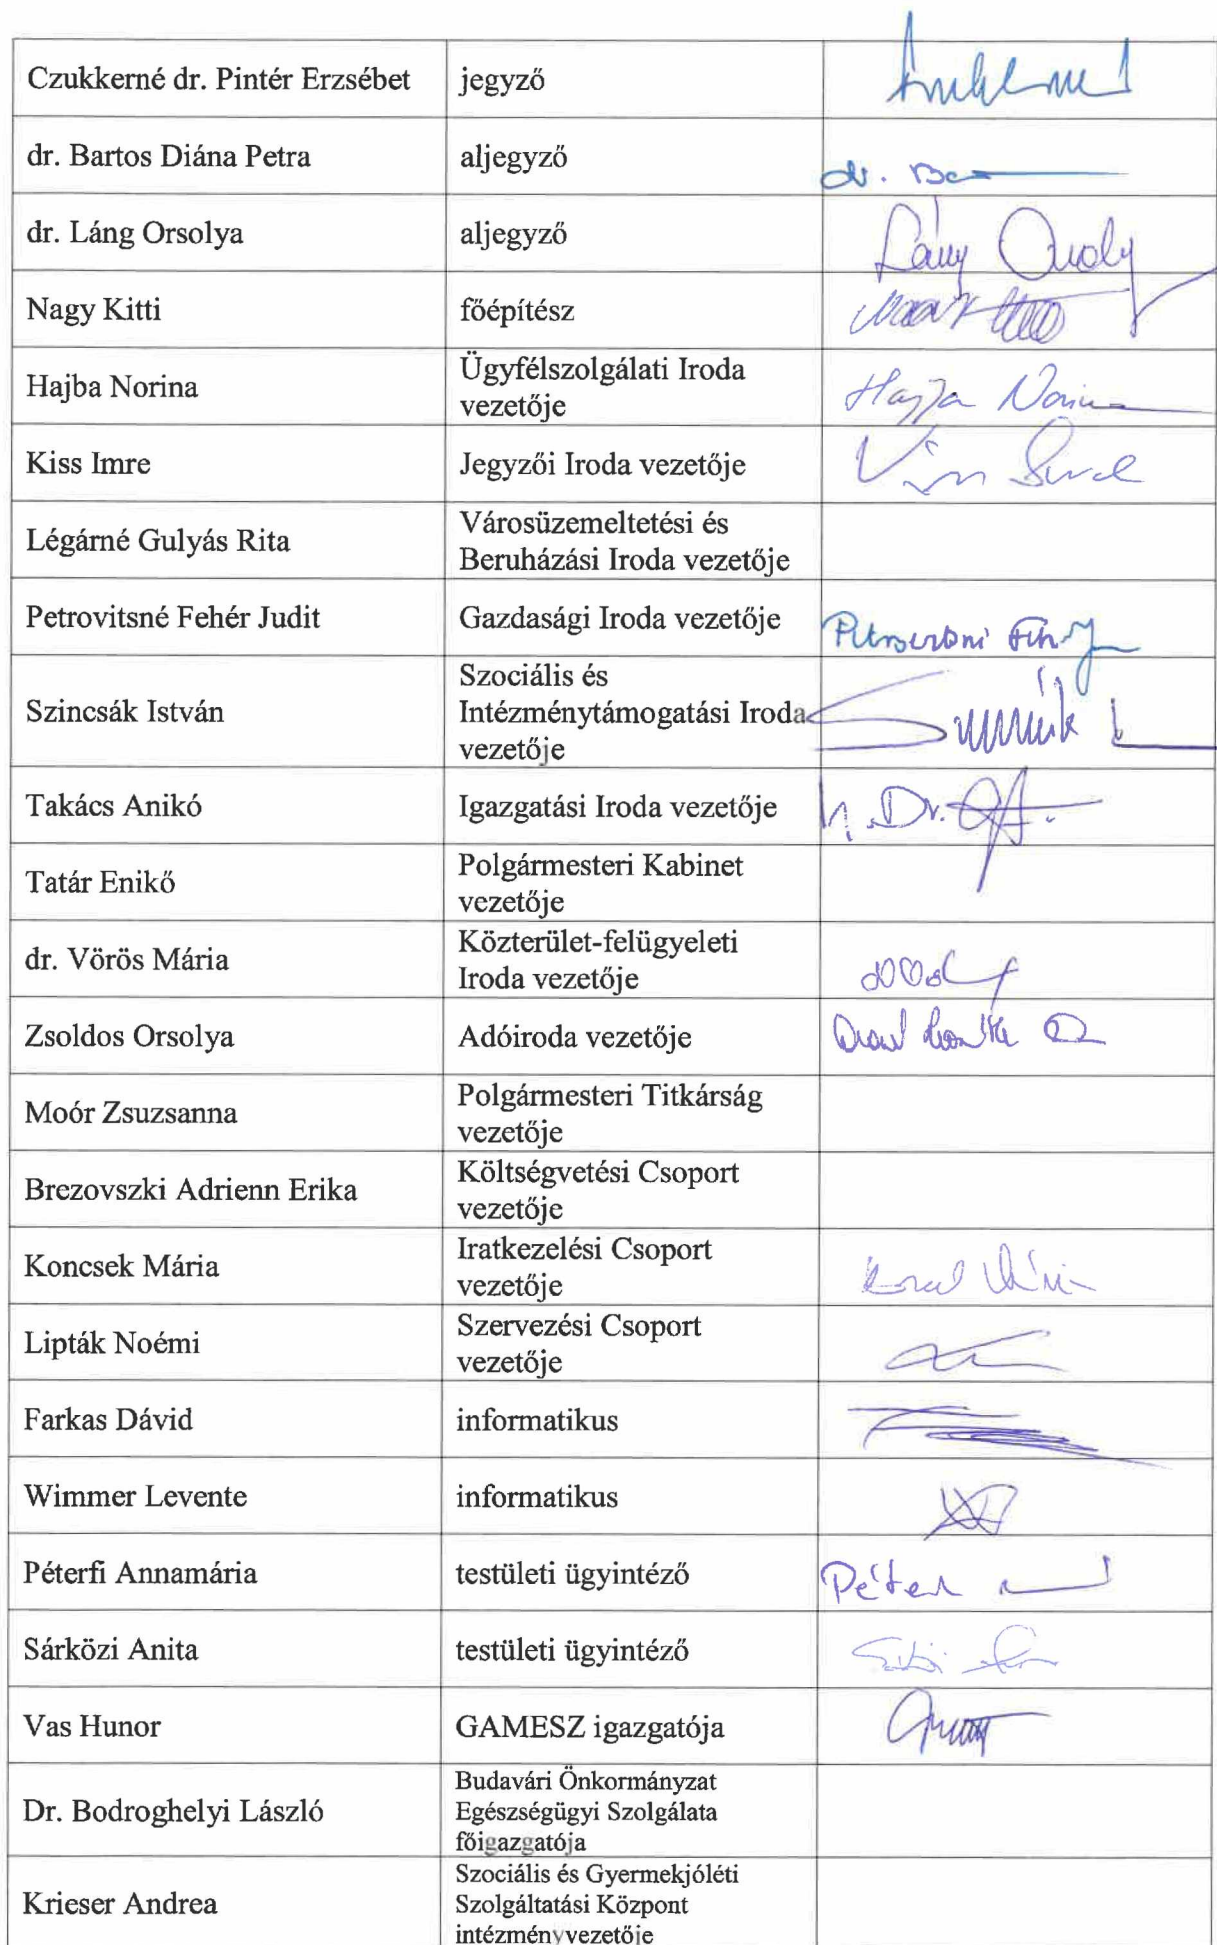 Czukkerné dr. Pintér Erzsébet jegyző
dr. Bartos Diána Petra aljegyző
dr. Ba
dr. Láng Orsolya aljegyző
Láng Orsoly
Nagy Kitti főépítész
Hajba Norina Ügyfélszolgálati Iroda
vezetője
Hajba Norina
Kiss Imre Jegyzői Iroda vezetője
Légárné Gulyás Rita Városüzemeltetési és
Beruházási Iroda vezetője
Petrovitsné Fehér Judit Gazdasági Iroda vezetője
Szincsák István Szociális és
Intézménytámogatási Iroda
vezetője
Takács Anikó Igazgatási Iroda vezetője
h. Dr.
Tatár Enikő Polgármesteri Kabinet
vezetője
dr. Vörös Mária Közterület-felügyeleti
Iroda vezetője
Zsoldos Orsolya Adóiroda vezetője
Moór Zsuzsanna Polgármesteri Titkárság
vezetője
Brezovszki Adrienn Erika Költségvetési Csoport
vezetője
Koncsek Mária Iratkezelési Csoport
vezetője
Lipták Noémi Szervezési Csoport
vezetője
Farkas Dávid informatikus
Wimmer Levente informatikus
Péterfi Annamária testületi ügyintéző
Sárközi Anita testületi ügyintéző
Vas Hunor GAMESZ igazgatója
Dr. Bodroghelyi László Budavári Önkormányzat
Egészségügyi Szolgálata
főigazgatója
Krieser Andrea Szociális és Gyermekjóléti
Szolgáltatási Központ
intézményvezetője